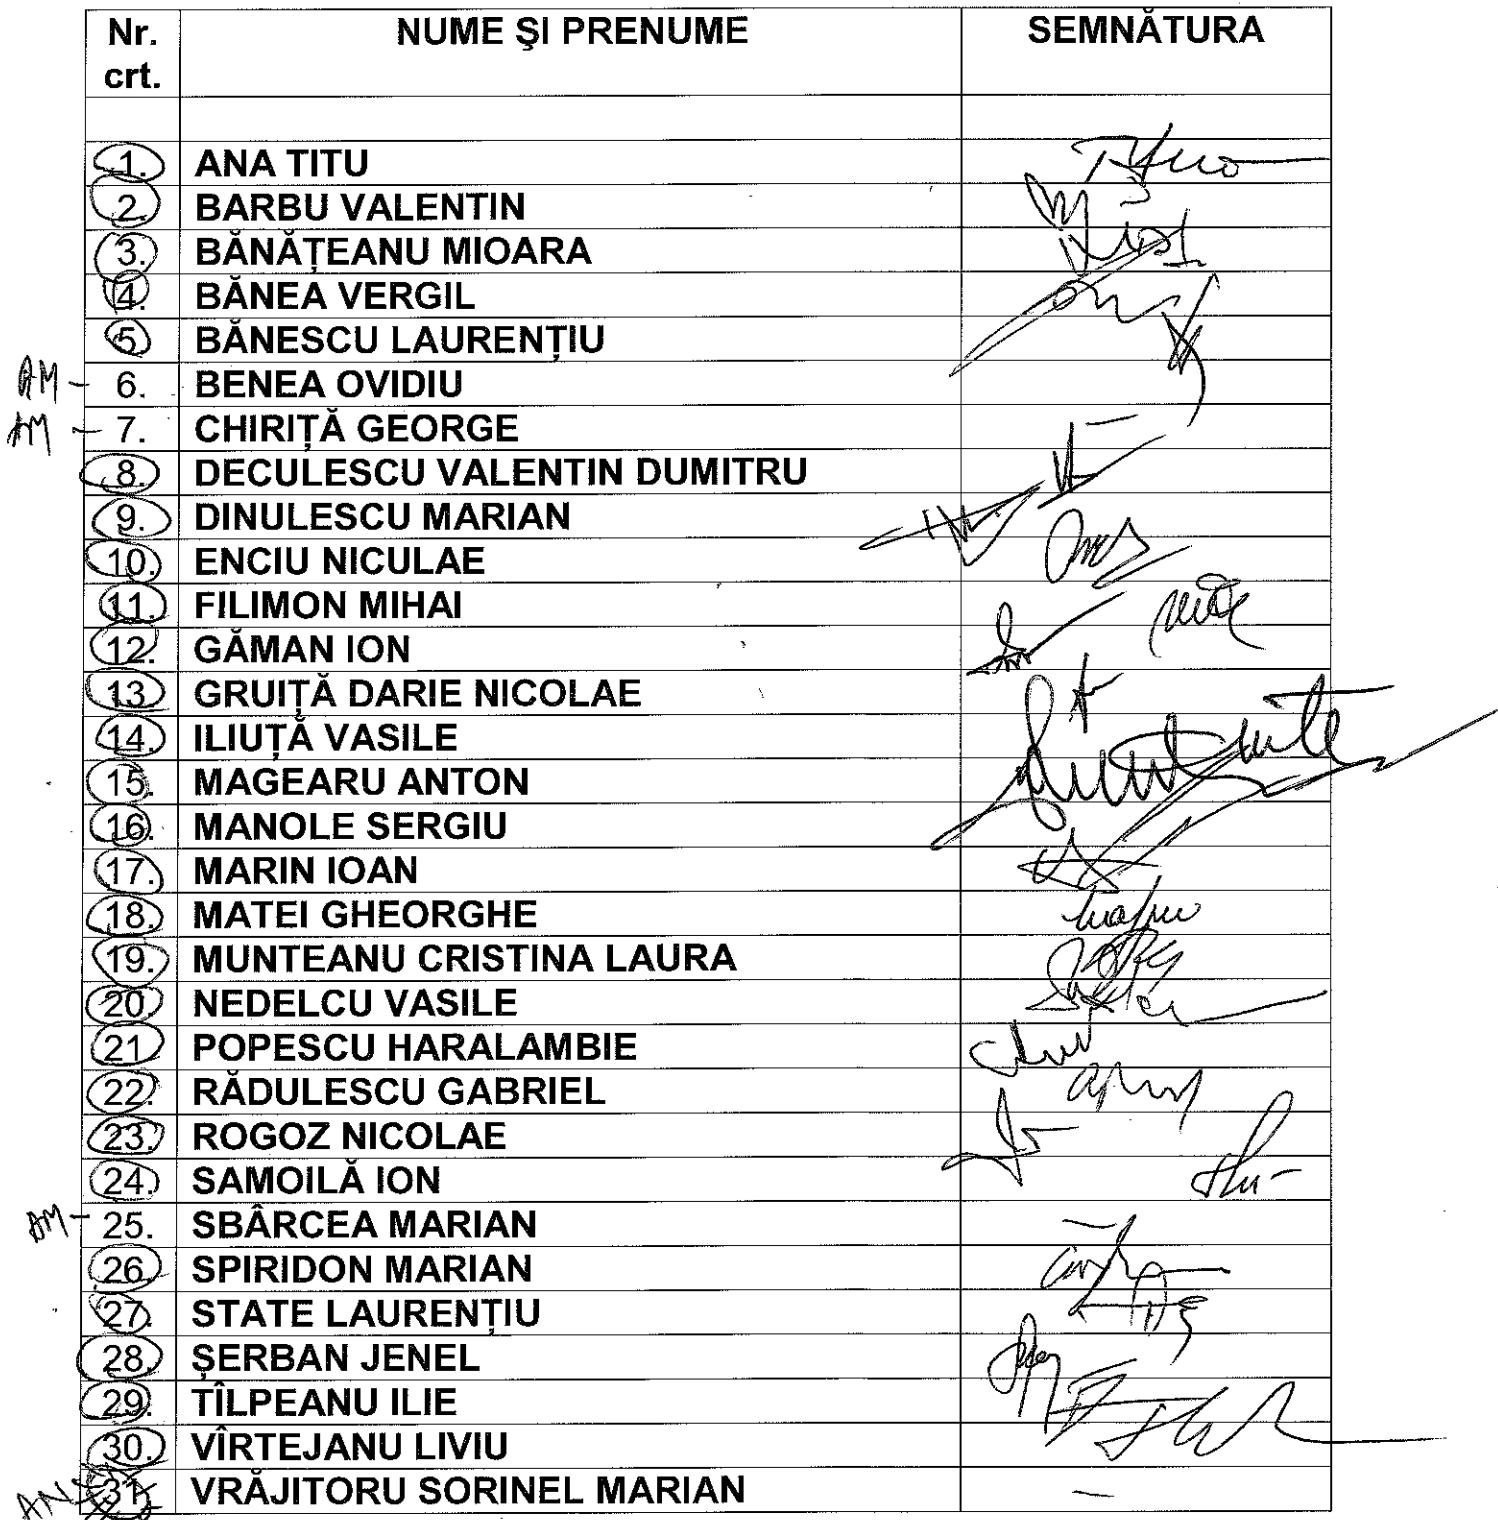 Nr. crt. NUME ŞI PRENUME SEMNĂTURA
1. ANA TITU
2. BARBU VALENTIN
3. BĂNĂȚEANU MIOARA
4. BĂNEA VERGIL
5. BĂNESCU LAURENȚIU
AM - 6. BENEA OVIDIU
AM - 7. CHIRIȚĂ GEORGE
8. DECULESCU VALENTIN DUMITRU
9. DINULESCU MARIAN
10. ENCIU NICULAE
11. FILIMON MIHAI
12. GĂMAN ION
13. GRUIȚĂ DARIE NICOLAE
14. ILIUȚĂ VASILE
15. MAGEARU ANTON
16. MANOLE SERGIU
17. MARIN IOAN
18. MATEI GHEORGHE
19. MUNTEANU CRISTINA LAURA
20. NEDELCU VASILE
21. POPESCU HARALAMBIE
22. RĂDULESCU GABRIEL
23. ROGOZ NICOLAE
24. SAMOILĂ ION
AM - 25. SBÂRCEA MARIAN
26. SPIRIDON MARIAN
27. STATE LAURENȚIU
28. ȘERBAN JENEL
29. TÎLPEANU ILIE
30. VÎRTEJANU LIVIU
31. VRĂJITORU SORINEL MARIAN –